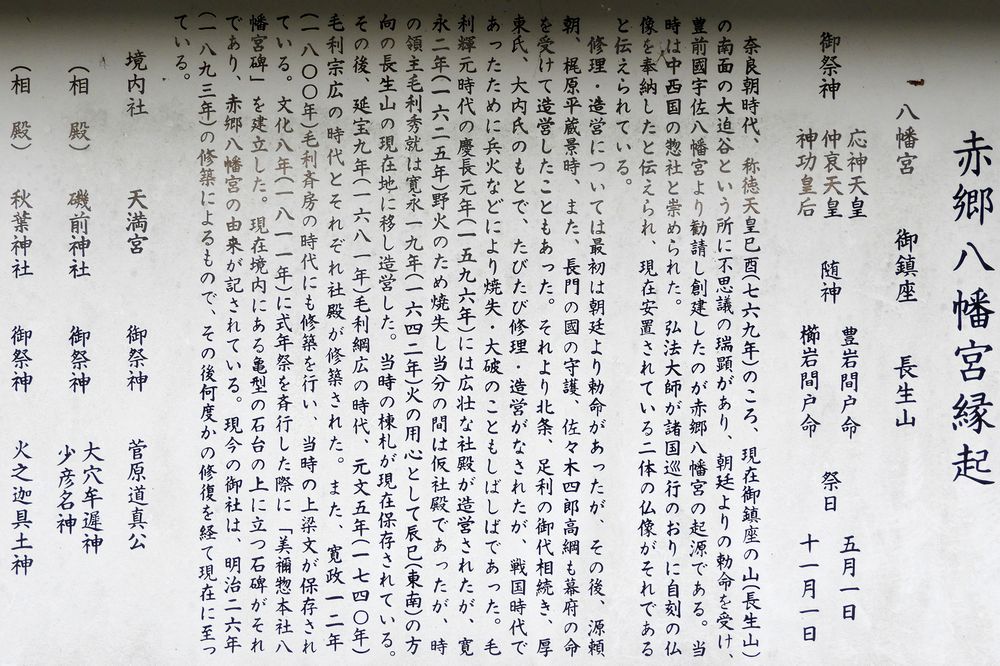 赤郷八幡宮縁起
八幡宮 御鎮座 長生山
御祭神 応神天皇 仲哀天皇 神功皇后 随神 豊岩間戸命 櫛岩間戸命 祭日 五月一日 十一月一日
奈良朝時代、称徳天皇巳酉(七六九年)のころ、現在御鎮座の山(長生山)
の南面の大迫谷という所に不思議の瑞顕があり、朝廷よりの勅命を受け、
豊前國宇佐八幡宮より勧請し創建したのが赤郷八幡宮の起源である。当
時は中西国の惣社と崇められた。弘法大師が諸国巡行のおりに自刻の仏
像を奉納したと伝えられ、現在安置されている二体の仏像がそれである
と伝えられている。
修理・造営については最初は朝廷より勅命があったが、その後、源頼
朝、梶原平蔵景時、また、長門の國の守護、佐々木四郎高綱も幕府の命
を受けて造営したこともあった。それより北条、足利の御代相続き、厚
東氏、大内氏のもとで、たびたび修理・造営がなされたが、戦国時代で
あったために兵火などにより焼失・大破のこともしばしばであった。毛
利輝元時代の慶長元年(一五九六年)には広壮な社殿が造営されたが、寛
永二年(一六二五年)野火のため焼失し当分の間は仮社殿であったが、時
の領主毛利秀就は寛永一九年(一六四二年)火の用心として辰巳(東南)の方
向の長生山の現在地に移し造営した。当時の棟札が現在保存されている。
その後、延宝九年(一六八一年)毛利綱広の時代、元文五年(一七四〇年)
毛利宗広の時代とそれぞれ社殿が修築された。また、寛政一二年
(一八〇〇年)毛利斉房の時代にも修築を行い、当時の上梁文が保存され
ている。文化八年(一八一一年)に式年祭を斉行した際に「美禰惣本社八
幡宮碑」を建立した。現在境内にある亀型の石台の上に立つ石碑がそれ
であり、赤郷八幡宮の由来が記されている。現今の御社は、明治二六年
(一八九三年)の修築によるもので、その後何度かの修復を経て現在に至っ
ている。
境内社 天満宮 御祭神 菅原道真公
(相殿) 磯前神社 御祭神 大穴牟遅神 少彦名神
(相殿) 秋葉神社 御祭神 火之迦具土神